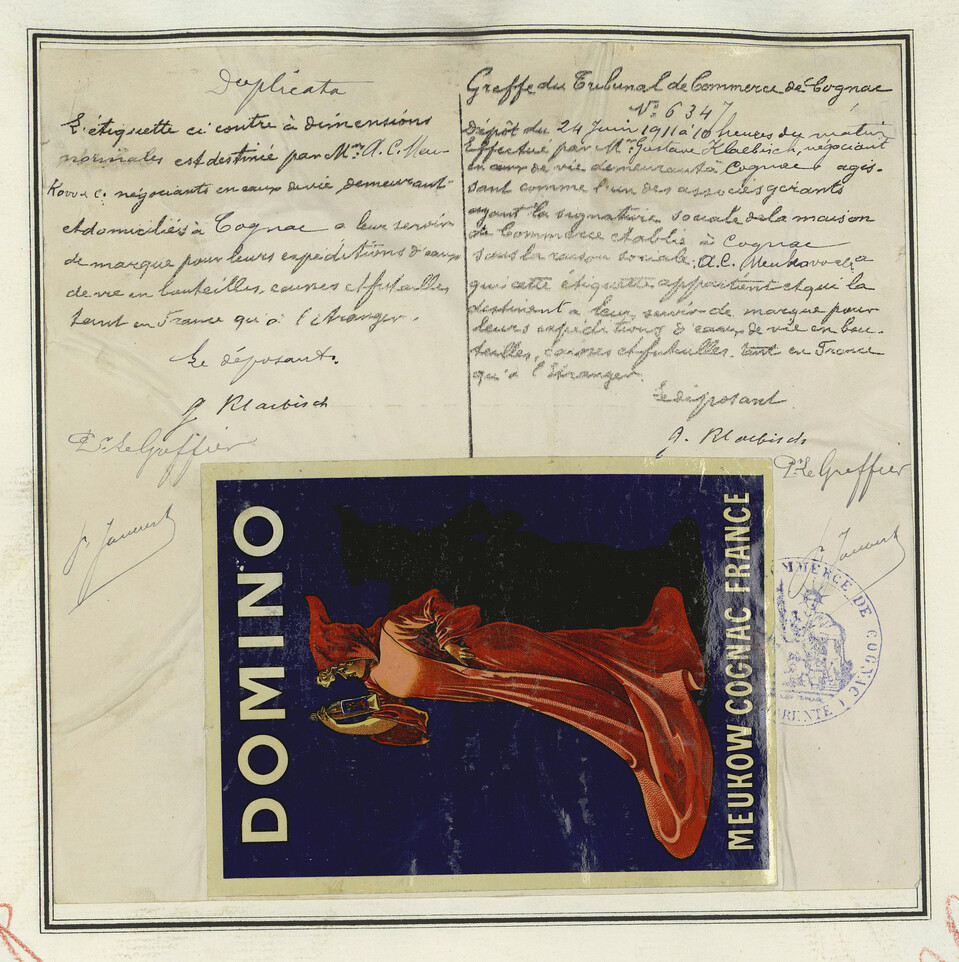 Duplicata
L'étiquette ci contre à dimensions
normales est destinée par Mrs A. C. Meu-
kow & Co négociants en eaux de vie, demeurant
et domiciliés à Cognac a leur servir
de marque pour leurs expéditions d'eaux
de vie en bouteilles, caisses et futailles
tant en France qu'à l'étranger.
Le déposant.
g. Klaebisch
Pr. Le Greffier
Greffe du Tribunal de Commerce de Cognac
No 6347
Dépôt du 24 Juin 1911 à 10 heures du matin
Effectué par Mr. Gustave Klaebisch, négociant
en eaux de vie demeurant à Cognac, agis-
sant comme l'un des associés gérants
ayant la signature sociale de la maison
de Commerce établie à Cognac
sous la raison sociale: A. C. Meukow & Co à
qui cette étiquette appartient et qui la
destinent a leur servir de marque pour
leurs expéditions d'eaux de vie en bou-
teilles, caisses et futailles. tant en France
qu'à l'étranger.
Le déposant
g. Klaebisch
Pr Le Greffier
DOMINO
MEUKOW COGNAC FRANCE
MMERCE DE COGNAC
RENTE